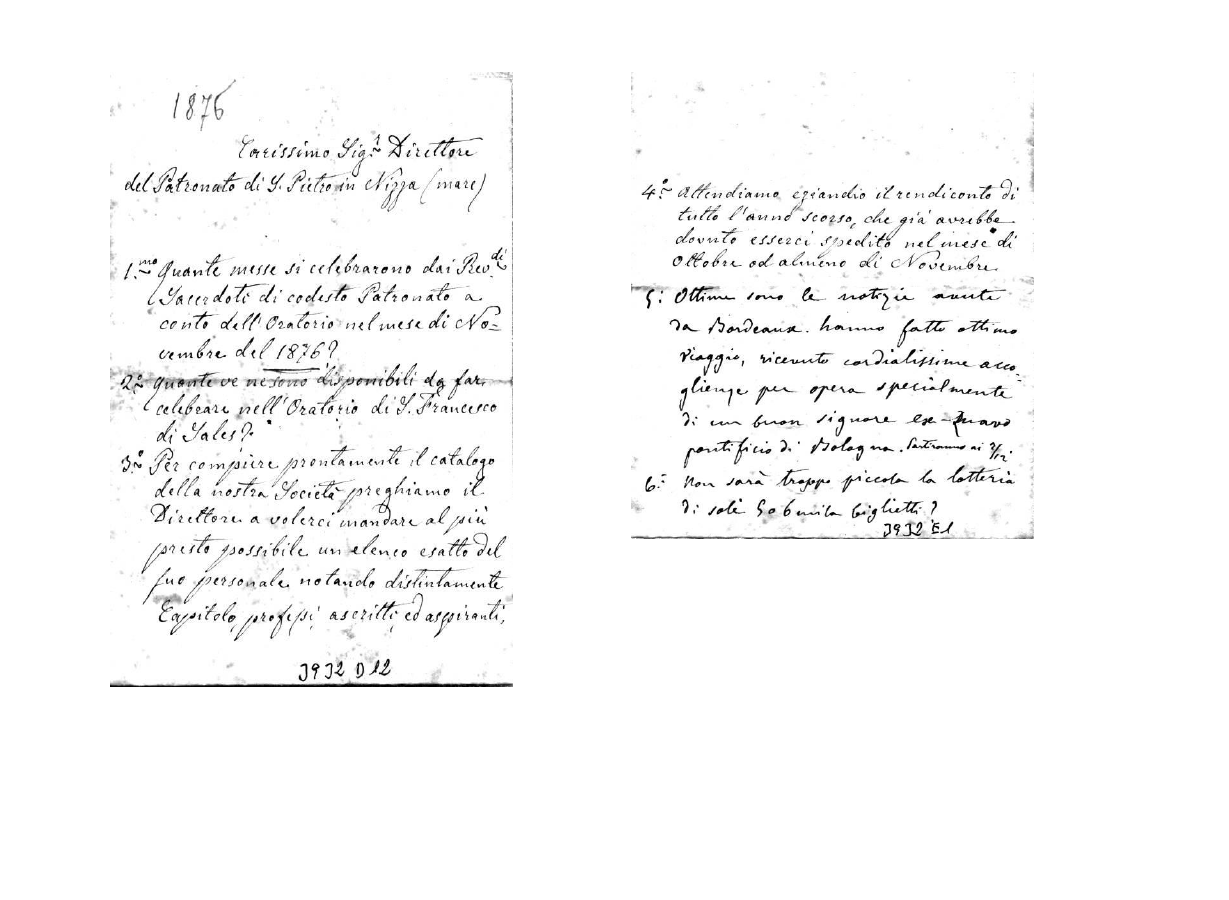 1876
Carissimo Sig.r Direttore
del Patronato di S. Pietro in Nizza (mare)
1.mo Quante messe si celebrarono dai Rev.di
Sacerdoti di codesto Patronato a
conto dell'Oratorio nel mese di No=
vembre del 1876?
2.o Quante ve ne sono disponibili da far
celebrare nell'Oratorio di S. Francesco
di Sales?
3.o Per compiere prontamente il catalogo
della nostra Società preghiamo il
Direttore a volerci mandare al più
presto possibile un elenco esatto del
suo personale notando distintamente
Capitolo, professi, ascritti, ed aspiranti,
3932 D 12
4.o Attendiamo eziandio il rendiconto di
tutto l'anno scorso, che già avrebbe
dovuto esserci spedito nel mese di
Ottobre od almeno di Novembre
5.o Ottime sono le notizie avute
da Bordeaux. hanno fatto ottimo
viaggio, ricevuto cordialissime acco-
glienze per opera specialmente
di un buon signore ex-Zuavo
pontificio di Bologna. Partranno ai 2/12.
6.o Non sarà troppo piccola la lotteria
di soli 5 o 6 mila biglietti?
3932 E 1